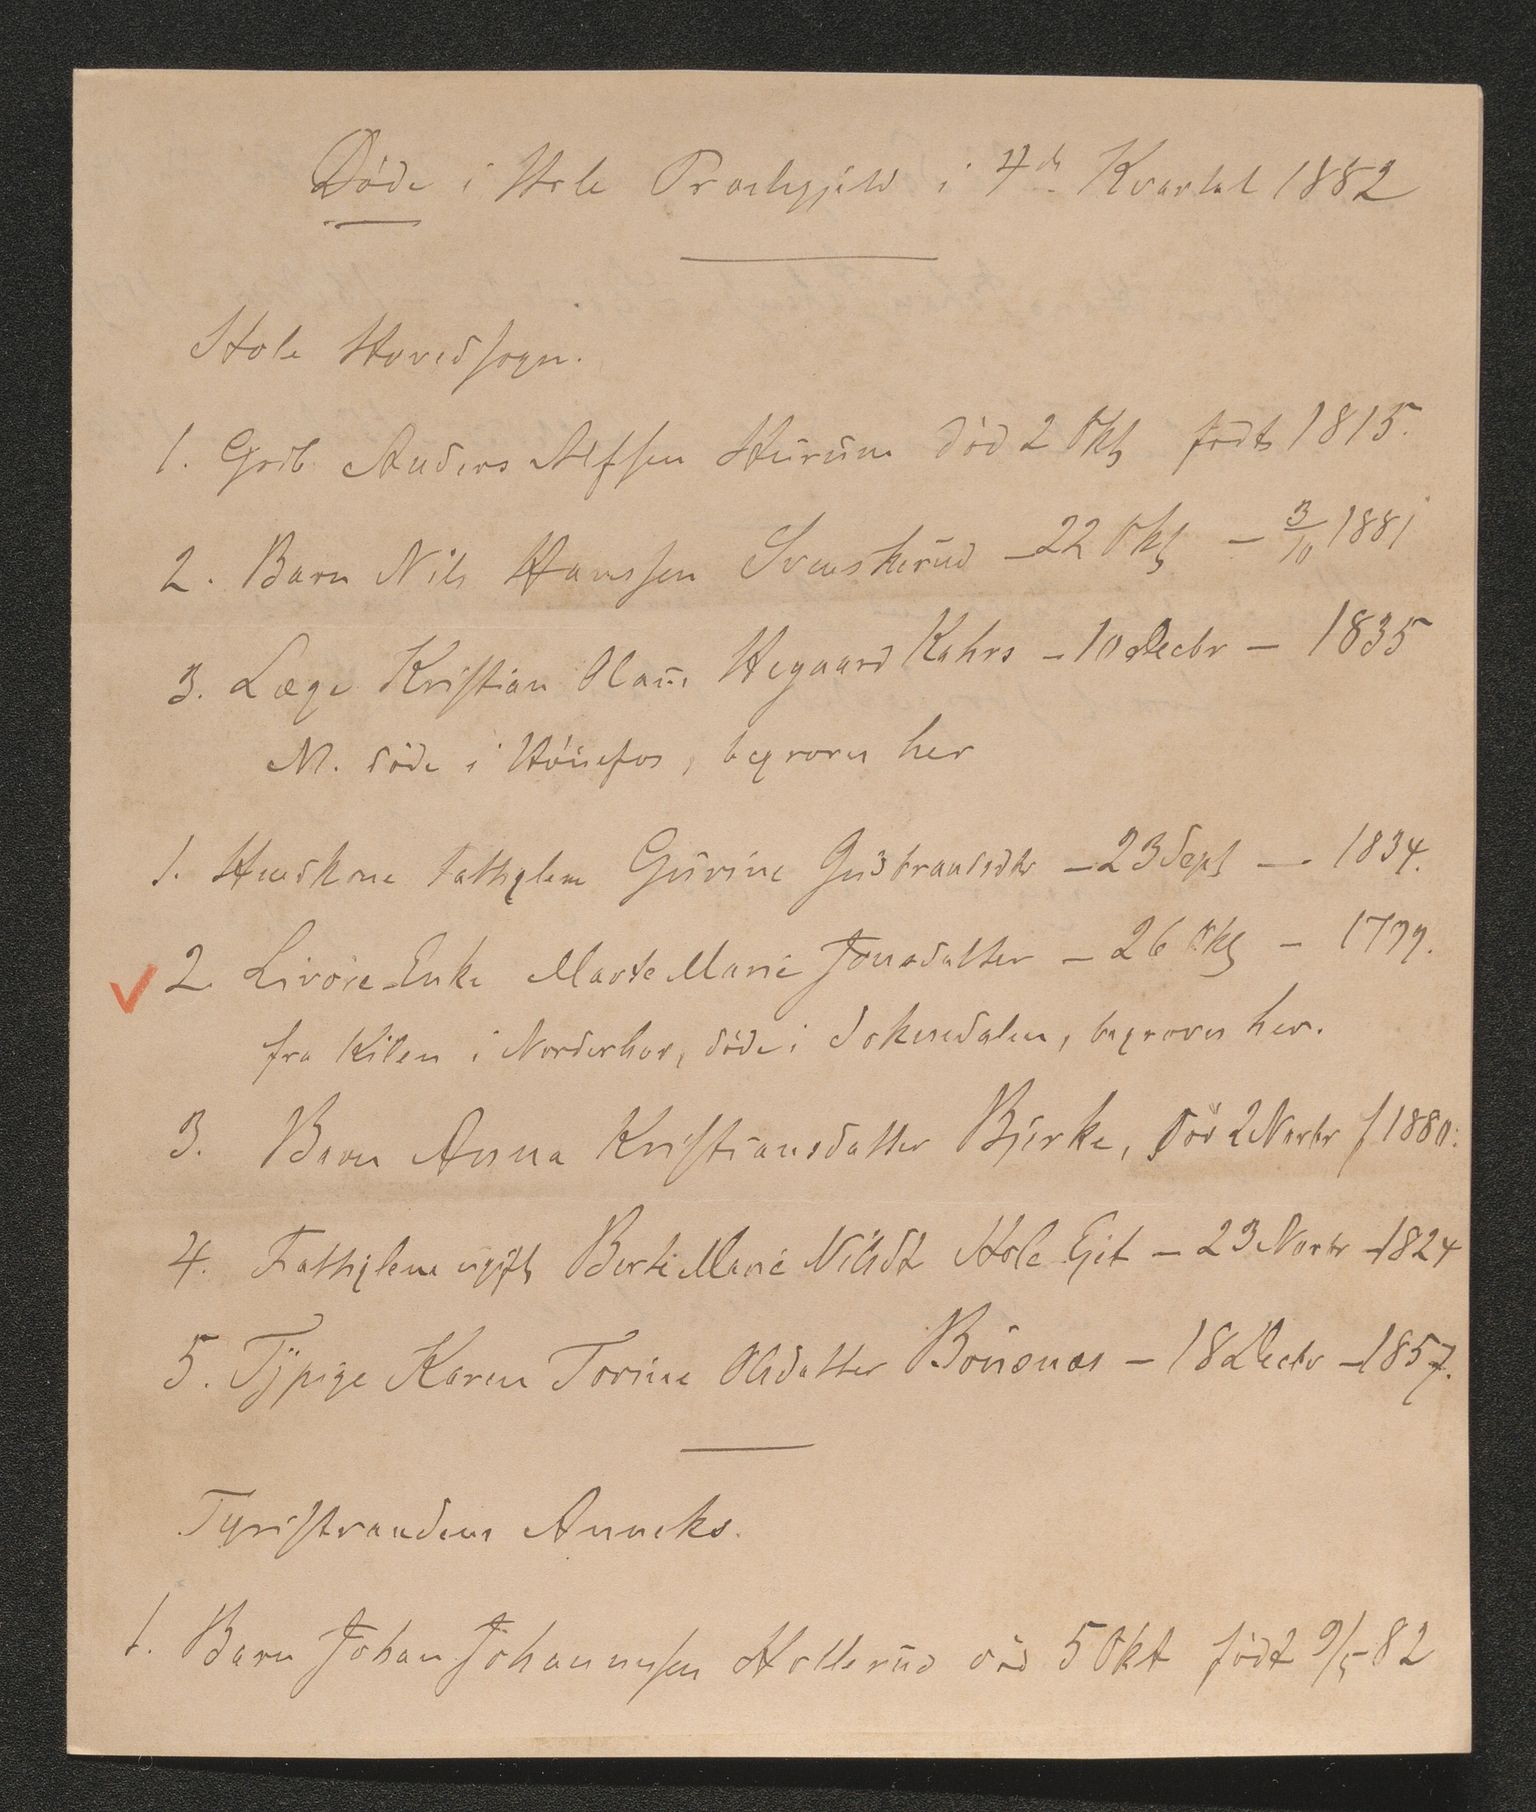 Døde i Hole Præstegjeld i 4de Kvartal 1882
Hole Hovedsogn.
1. Grdb. Anders Alfsen Hurum død 2 Okt født 1815.
2. Barn Nils Hanssen Svenskerud – 22 Okt – 3/10 1881
3. Læge Kristian Olaus Hegaard Kahrs – 10 Decbr – 1835
N. døde i Hönefos, begraves her
1. Huskone Fattiglem Gurine Gulbrandsdtr – 23 Sept – 1834.
2. Livöre-Enke Marte Marie Jonsdatter – 26 Okt – 1799.
fra Kilen i Norderhov, døde i Sokensdalen, begraves her.
3. Barn Anna Kristiansdatter Bjerke, död 2 Novbr f 1880.
4. Fattiglem ugift Berte Marie Nilsdt Hole Eiet – 23 Novbr – 1824
5. Tj.pige Karen Torine Olsdatter Bönsnæs – 18 Decbr – 1857.
Tyristrandens Anneks.
1. Barn Johan Johannessen Hollerud död 5 Okt født 9/5 82